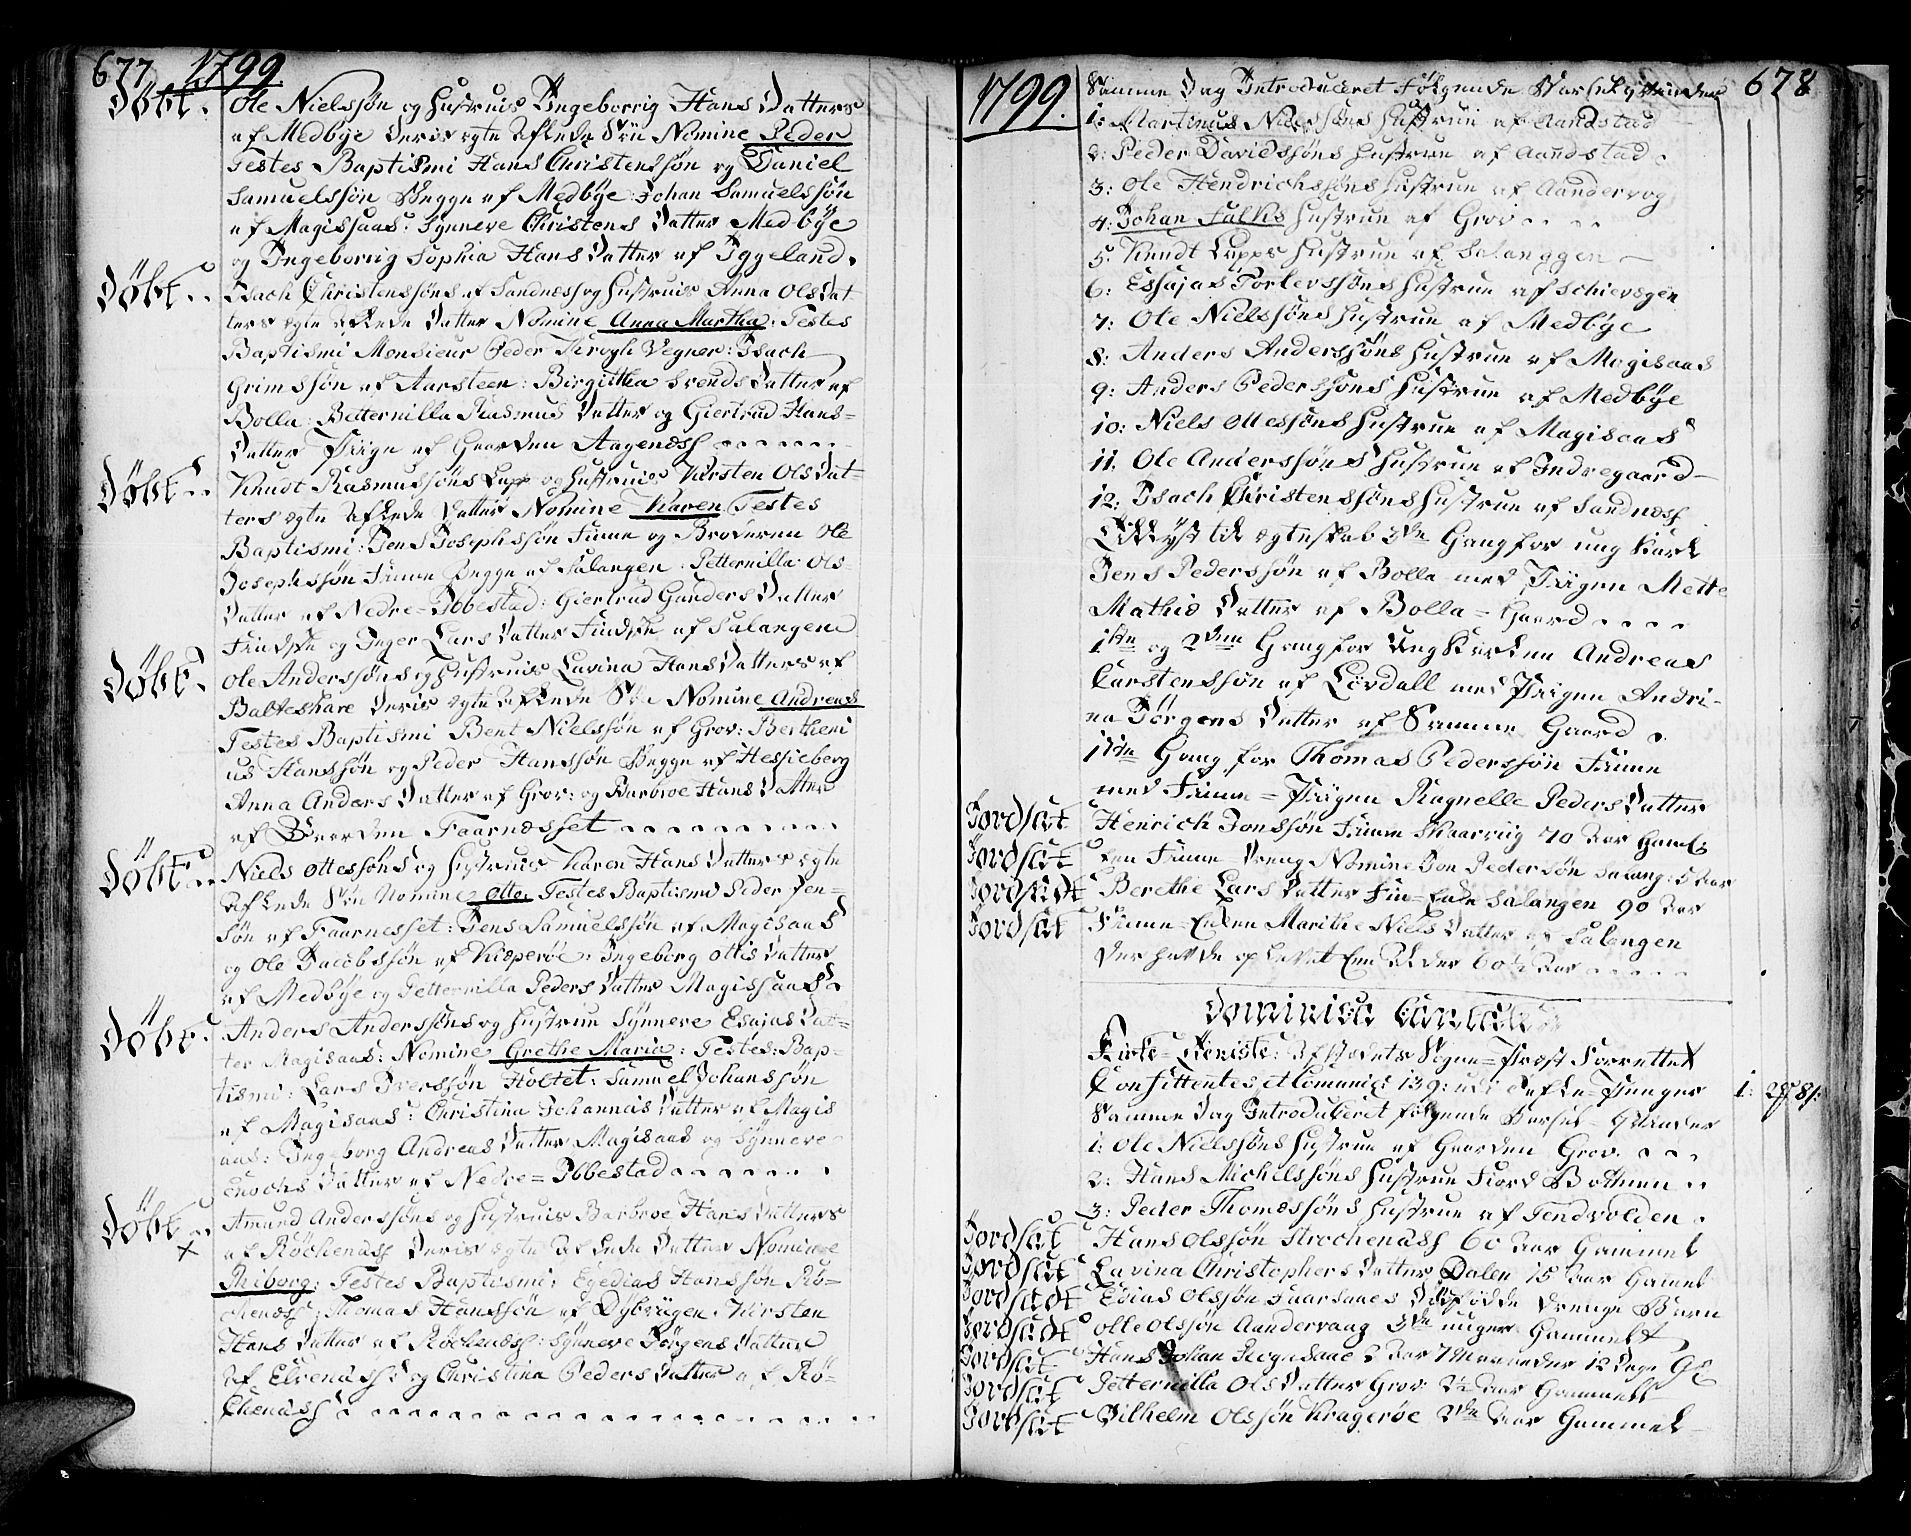 677. 1799.
Døbt. Ole Nielssøn og Hustruis Ingeborrig Hans Datters
af Medbÿe deris ægte aflede Søn Nomine Peder
Testes Baptismi Hans Christenssøn og Daniel
Samuelssøn Begge af Medbÿe: Johan Samuelssøn
af Magissaas: Sÿnneve Christens Datter Medbÿe
og Ingeborrig Sophia Hans Datter af Iggeland.
Døbt.. Isach Christenssøns af Sandness og Hustruis Anna Ols Dat-
ters ægte aflede Datter Nomine Anna Martha: Testes
Baptismi Monsieur Peder Krogh Vegner: Isach
Grimssøn af Aarsteen: Birgitha Svends Datter af
Bolla: Betternilla Rasmus Datter og Giertrud Hans-
Datter Piige af Gaarden Aagenæss
Døbt.. Knudt Rasmussøns Lapp og Hustruis Kirsten Ols Dat-
ters ægte aflede Datter Nomine Karen Testes
Baptismi: Jens Josephssøn Finne og Broderen Ole
Josephssøn Finne Begge af Salangen: Petternilla Ols
Datter af Nedre=Ibbestad: Giertrud Gunders Datter
Findsk og Inger Lars Datter Findsk af Salangen
Døbt. Ole Anderssøns og Hustruis Lavina Hans Datters af
Balteskare deris ægte aflede Søn Nomine Andreas
Testes Baptismi Bent Nielssøn af Grov: Berthini
us Hanssøn og Peder Hanssøn Begge af Hessieberg
Anna Anders Datter af Grov: og Barbroe Hans Datter
af Gaarden Faarnesset
Døbt.. Niels Ottessøns og Hustruis Karen Hans Datters ægte
aflede Søn Nomine Otto. Testes Baptismi Peder Jen=
søn af Faarnesset: Jens Samuelssøn af Magisaas
og Ole Jacobssøn af Kræperöe: Ingeborg Ottis Datter
af Medbÿe og Petternilla Peders Datter Magissaas.
Døbt. Anders Anderssøns og Hustrue Sÿnneve Esaias Dat=
ter Magisaas: Nomine Grethe Maria: Testes: Bap-
tismi: Lars Iverssøn Holtet: Samuel Johanssøn
af Magisaas: Christina Johannis Datter af Magis
aas: Ingeborg Andreas Datter Magisaas og Sÿnneve
Enochs Datter af Nedre=Ibbestad
Døbt.. Amund Anderssøns og Hustruis Barbroe Hans Datters
× af Röchenæss deris ægte aflede Datter Nomine
Riborg: Testes Baptismi: Egedius Hanssøn Rö=
chenæss: Thomas Hanssøn af Dÿbvigen: Kirsten
Hans Datter af Röchenæss: Sÿnneve Jörgens Datter
af Elvenæss: og Christina Peders Datter af Rö=
chenæss
1799. 678
Samme Dag Introduceret Følgende Barselqvinder
1: Martinus Nielssøns Hustrue af Aandstad
2: Peder Davidssøns Hustrue af Aandstad.
3: Ole Hendrichssøns Hustrue af Aandervog
4: Johan Falks Hustrue af Grov
5: Knudt Lapps Hustrue af Salanggen
6: Essajas Torlevssøns Hustrue af Schievsgen
7: Ole Nielssøns Hustrue af Medbÿe
8: Anders Anderssøns Hustrue af Magisaas
9: Anders Pederssøns Hustrue af Medbÿe
10: Niels Ottessøns Hustrue af Magisaas
11. Ole Anderssøns Hustrue af Indregaard
12: Isach Christenssøns Hustrue af Sandnæss
Tillÿst til ægteskab 3de Gang for ung Karl
Jens Pederssøn af Bolla med Piigen Mette
Mathis Datter af Bolla=Gaard
1ste og 2den Gang for Ung Karlen Andreas
Carstenssøn af Lövdall med Piigen Andri-
na Jörgens Datter af Samme Gaard.
1ste Gang for Thomas Pederssøn Finne
med Finne=Piigen Ragnelle Peders Datter
Jordsat Henrich Jonssøn Finne Skaarviig 70 Aar Gaml:
Jordsat een Finne Dreng Nomine Jon Pederssøn Salang: 5 Aar
Jordsadt Berethe Lars Datter Fin=Enke Salangen 90 Aar
Jordsat Finne=Enken Marithe Niels Datter af Salangen
Der hafde oplevet Een Alder 60½ Aar
Dominica Cantate
Kirke=Tieniste: Af Stedets Sogne=Præst Forrettet
Confittentes, et Comunic: 139: udi Tafle=Penger 1: 2# 8/:
Samme Dag Introduceret følgende Barsel=qvinder
1: Ole Nielssøns Hustrue af Gaarden Grov
2: Hans Michelssøns Hustrue Fiord Botnen
3: Peder Thomessøns Hustrue af Tendvolden.
Jordsat Hans Olssøn Strochenæss 60 Aar Gammel
Jordsat Lavina Christophers Datter Dalen 15 Aar Gamel
Jordsadt Edias Olssøn Faarsanes Dödfödde Drenge Barn
Jordsadt Olle Olssøn Aandervaag 3de uger Gammelt
Jordsat Hans Johan Rognsaae 2 Aar 7 Maaneder 12 Dage Gl
Jordsat Petternilla Ols Datter Grov 2½ Aar Gammelt
Jordsat Vilhelm Olssøn Kragerøe 2de Aar Gammel